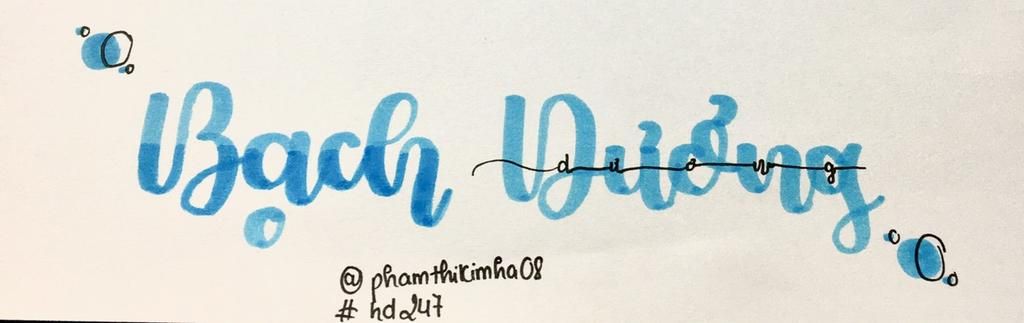 Bạch Dương
dương
@phamthikimha08
#hd247